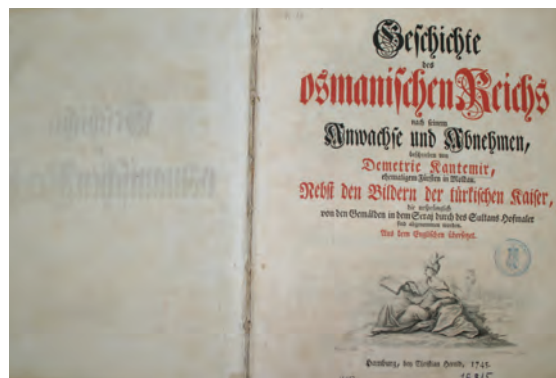 Geschichte
des
osmanischen Reichs
nach seinem
Anwachse und Abnehmen,
beschrieben von
Demetrie Kantemir,
ehemaligem Fürsten in Moldau.
Nebst den Bildern der türkischen Kaiser,
die ursprünglich
von den Gemälden in dem Seraj durch des Sultans Hofmaler
sind abgenommen worden.
Aus dem Englischen übersetzet.
Hamburg, bey Christian Herold, 1745.